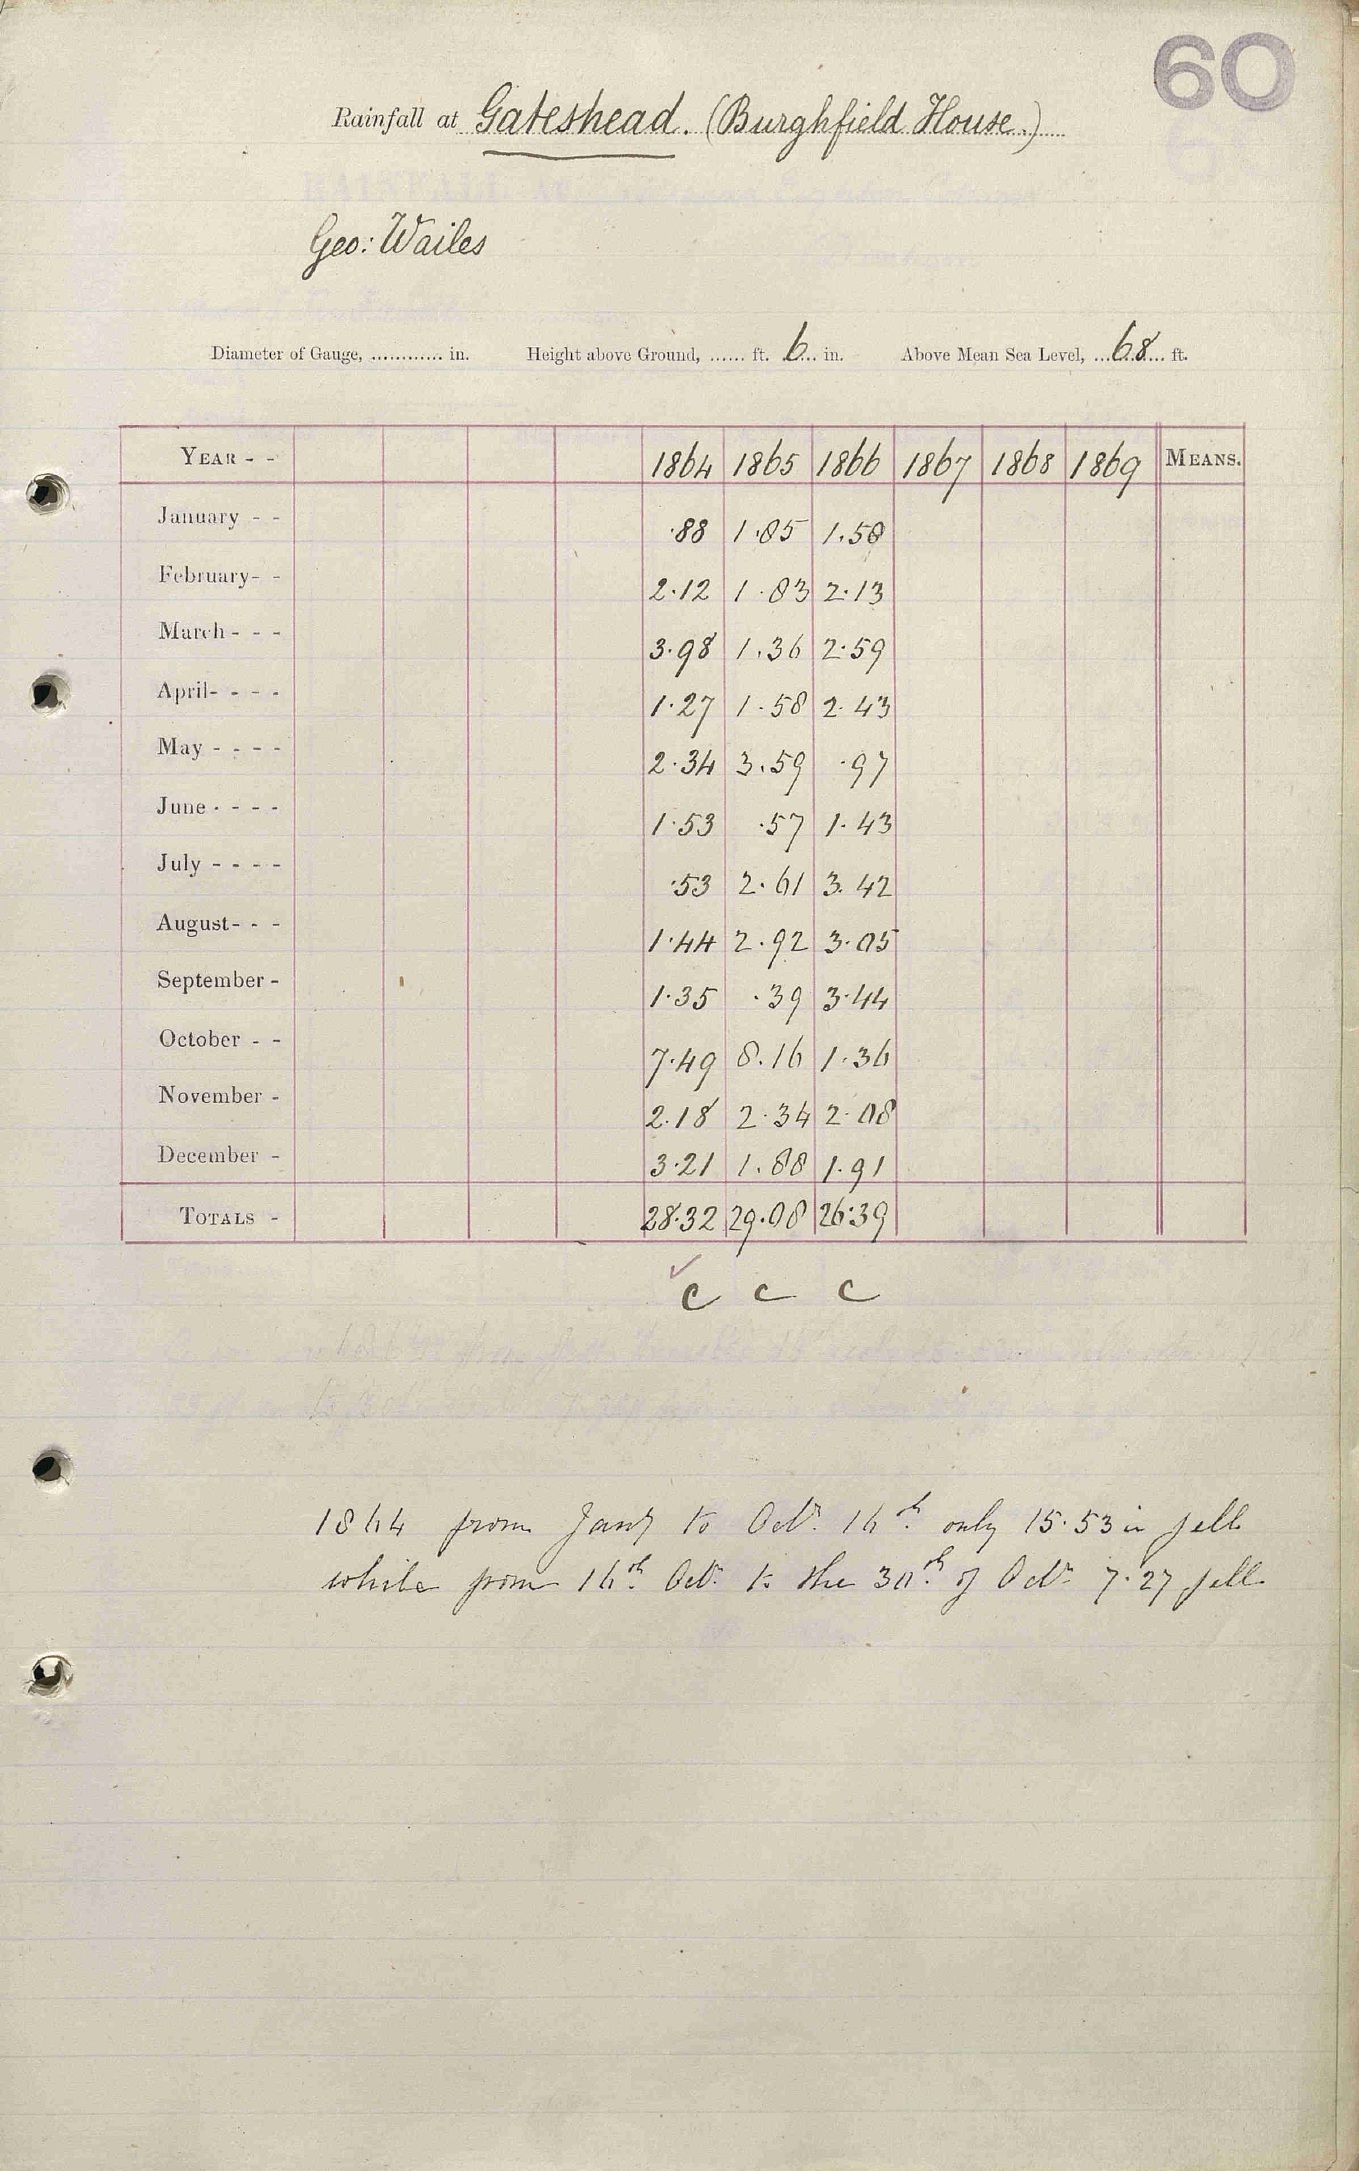 60
Rainfall at Gateshead. (Burghfield House.)
Geo: Wailes
Diameter of Gauge, ............ in. Height above Ground, ...... ft. 6 in. Above Mean Sea Level, 68 ft.
YEAR - - 1864 1865 1866 1867 1868 1869 MEANS.
January - - ·88 1·85 1.58
February - - 2·12 1·83 2·13
March - - - 3·98 1.36 2·59
April - - - - 1·27 1·58 2·43
May - - - - 2·34 3.59 ·97
June - - - - 1·53 ·57 1·43
July - - - - ·53 2·61 3.42
August - - - 1·44 2·92 3·05
September - 1·35 ·39 3·44
October - - 7·49 8.16 1·36
November - 2.18 2·34 2·08
December - 3·21 1.88 1·91
TOTALS - 28·32 29·08 26·39
c c c
1864 from Jany to Octr. 16th. only 15·53 in fell
while from 16th. Oct. to the 30th. of Octr 7·27 fell